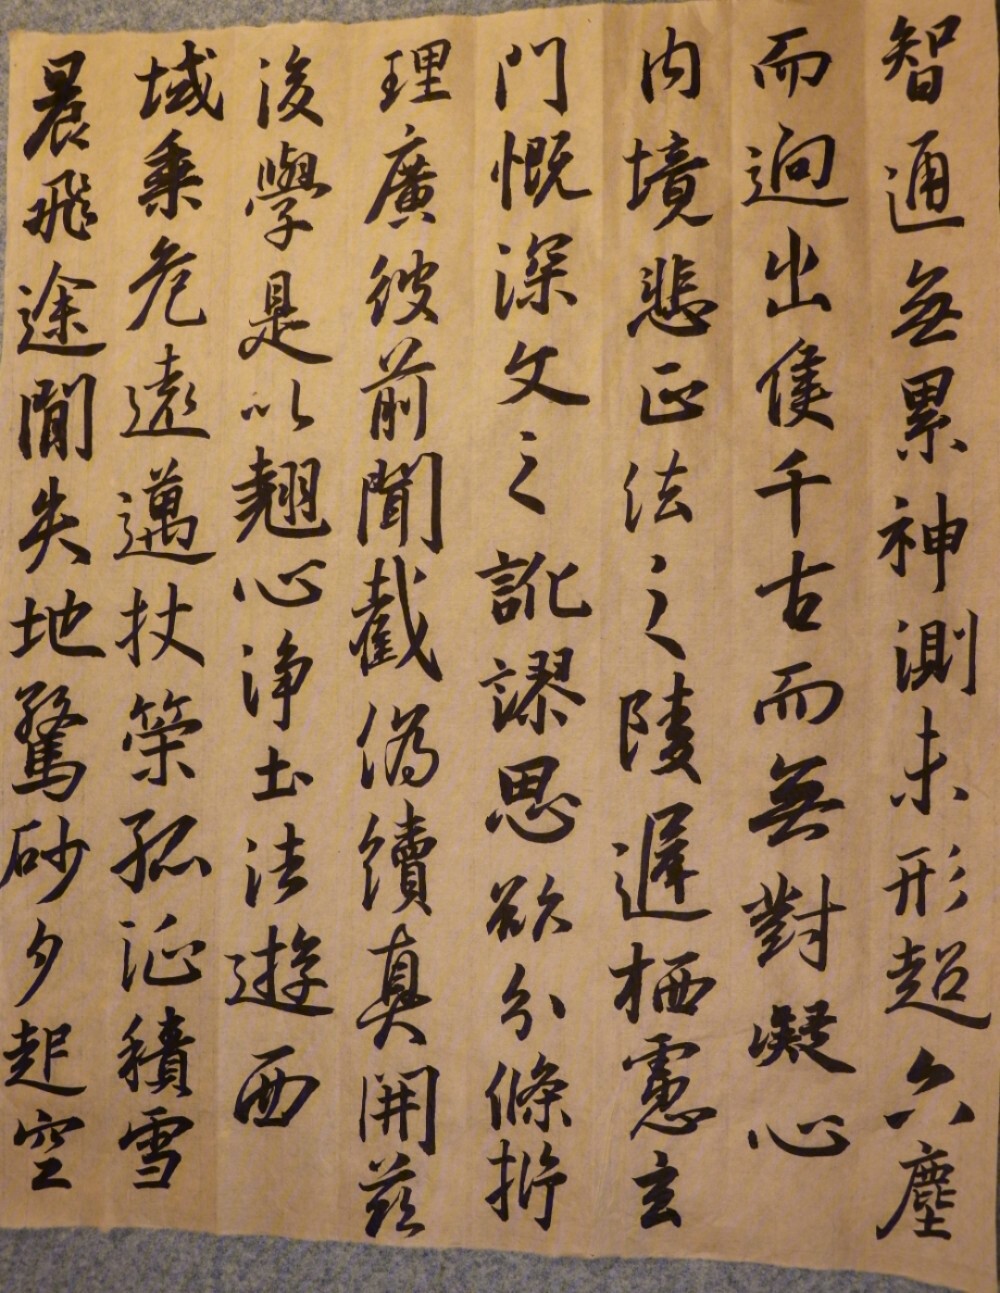 智通無累神測未形超六塵
而迥出隻千古而無對凝心
內境悲正法之陵遲栖慮玄
門慨深文之訛謬思欲分條析
理廣彼前聞截偽續真開茲
後學是以翹心淨土法遊西
域乘危遠邁杖策孤征積雪
晨飛途閒失地驚砂夕起空